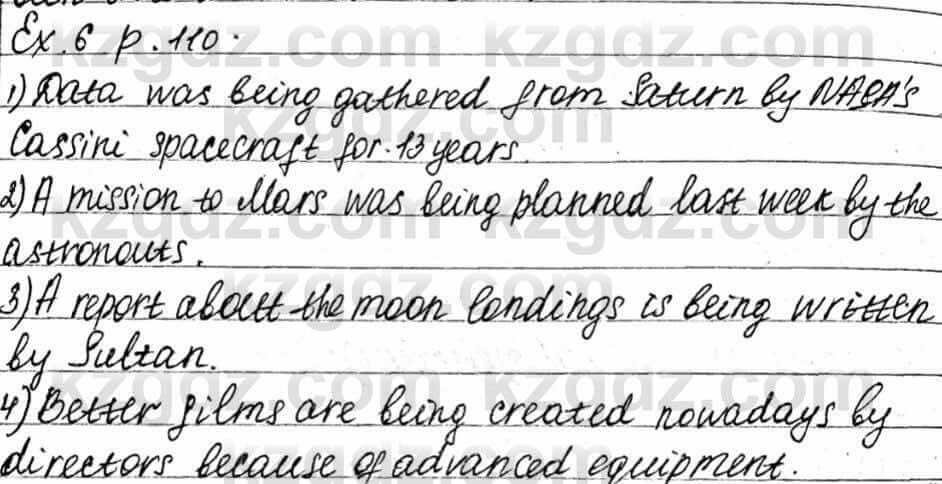 Ex. 6 p. 110.
1) Data was being gathered from Saturn by NASA's
Cassini spacecraft for 13 years.
2) A mission to Mars was being planned last week by the
astronouts.
3) A report about the moon londings is being written
by Sultan.
4) Better films are being created nowadays by
directors because of advanced equipment.
kzgdz.com